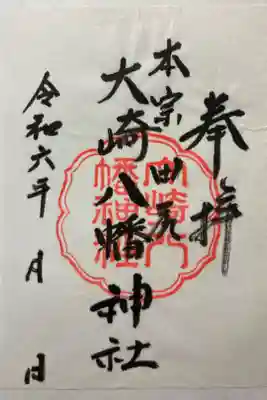 奉拝
本宗田尻
大崎八幡神社
令和六年 月 日
大崎八
幡神社